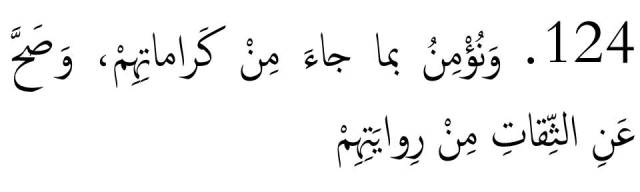 124. وَنُؤْمِنُ بما جاءَ مِنْ كَراماتِهِمْ، وَصَحَّ
عَنِ الثِّقاتِ مِنْ رِوايَتِهِمْ